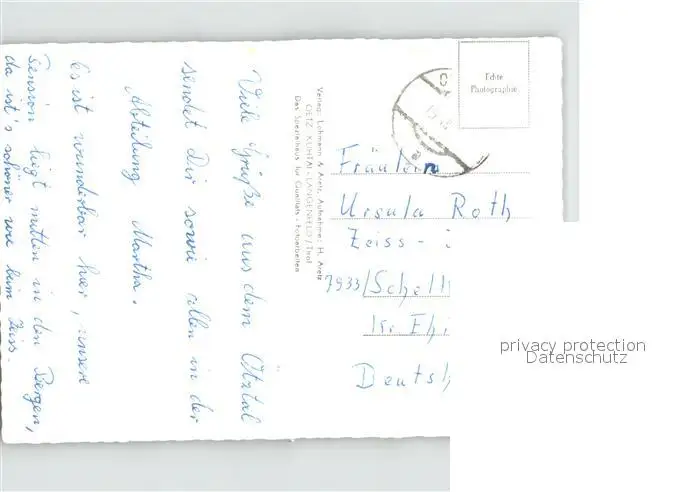 Viele Grüße aus dem Ötztal
sendet Dir sowie allen in der
Abteilung Martha.
Es ist wunderbar hier, unsere
Pension liegt mitten in den Bergen,
da ist's schöner wie beim Zeiss.
Verlag: Lohmann & Aretz, Aufnahme: H. Aretz
OETZ - KÜHTAI - LÄNGENFELD / Tirol
Das Spezialhaus für Qualitäts-Fotoarbeiten
Echte
Photographie
Fräulein
Ursula Roth
Zeiss -
7933/Schelk
Kr. Ehi
Deutsch
privacy protection
Datenschutz